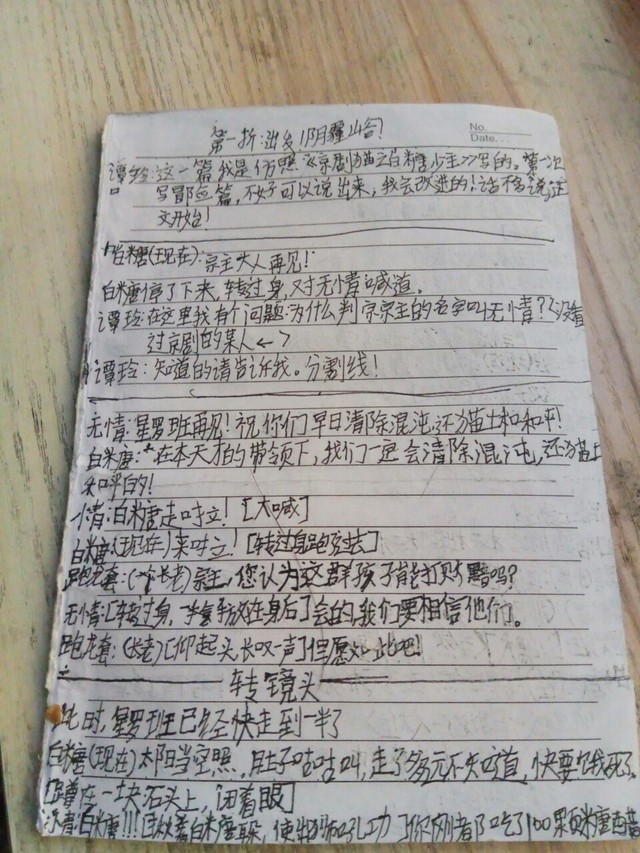 第一折:出发!阴霾山谷!
No.
Date.
谭玲:这一篇我是仿照《京剧猫之白糖少主》写的。第一次
写冒险篇,不好可以说出来,我会改进的!话不多说,正
文开始!
白糖(现在):宗主大人再见!
白糖停了下来,转过身,对无情喊道。
谭玲:在这里我有个问题:为什么判宗宗主的名字叫无情??没看
过京剧的某人
谭玲:知道的请告诉我。分割线!
无情:星罗班再见!祝你们早日清除混沌,还猫土和和平!
白糖:在本天才的带领下,我们一定会清除混沌,还猫土
和平的!
情:白糖走时立![大喊]
白糖(现在)来时立![转过身跑过去]
跑龙套:(一个长老)宗主,您认为这群孩子能打败黯吗?
无情:[转过身,一手放在身后]会的,我们要相信他们。
跑龙套:(长老)[仰起头长叹一声]但愿如此吧!
转镜头
此时,星罗班已经快走到一半了
白糖(现在)太阳当空照,肚子咕咕叫,走了多元不知道,快要饿死了
[蹲在一块石头上,闭着眼]
白糖!!!你刚才吃了100颗糖